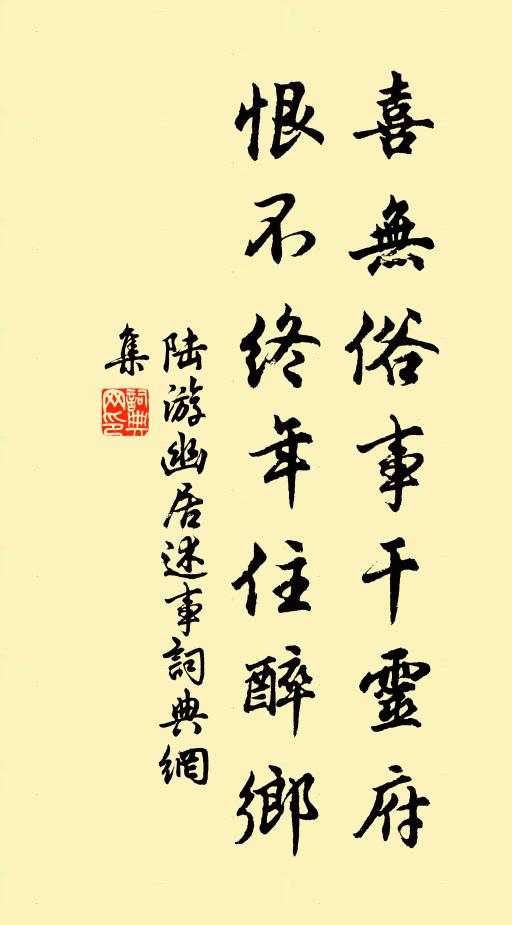 喜無俗事干靈府
恨不終年住醉鄉
陆游幽居述事詞典網
集
詞典
网印